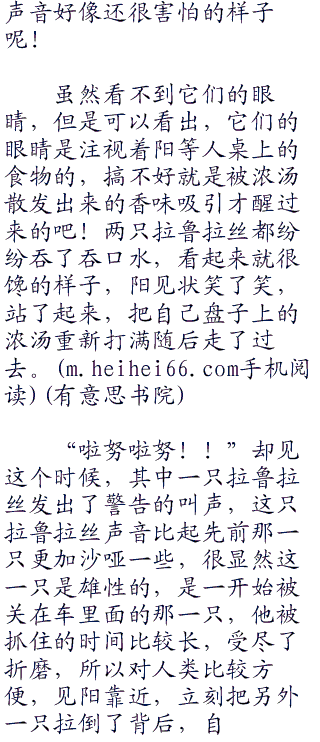 声音好像还很害怕的样子
呢！
虽然看不到它们的眼
睛，但是可以看出，它们的
眼睛是注视着阳等人桌上的
食物的，搞不好就是被浓汤
散发出来的香味吸引才醒过
来的吧！两只拉鲁拉丝都纷
纷吞了吞口水，看起来就很
馋的样子，阳见状笑了笑，
站了起来，把自己盘子上的
浓汤重新打满随后走了过
去。(m.heihei66.com手机阅
读)(有意思书院)
“啦努啦努！！”却见
这个时候，其中一只拉鲁拉
丝发出了警告的叫声，这只
拉鲁拉丝声音比起先前那一
只更加沙哑一些，很显然这
一只是雄性的，是一开始被
关在车里面的那一只，他被
抓住的时间比较长，受尽了
折磨，所以对人类比较方
便，见阳靠近，立刻把另外
一只拉倒了背后，自